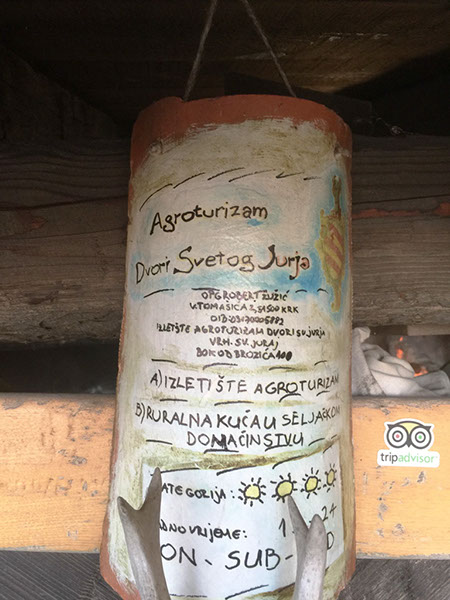 Agroturizam
Dvori Svetog Jurja
OPG ROBERT ŽUŽIĆ
V. TOMAŠICA 2, 51500 KRK
IZLETIŠTE AGROTURIZAM DVORI SV. JURJA
VRH. SV. JURAJ
A) IZLETIŠTE AGROTURIZAM
B) RURALNA KUĆA U SELJAČKOM
DOMAĆINSTVU
ATEGORIJA:
DNO VRIJEME:
ON - SUB -
tripadvisor